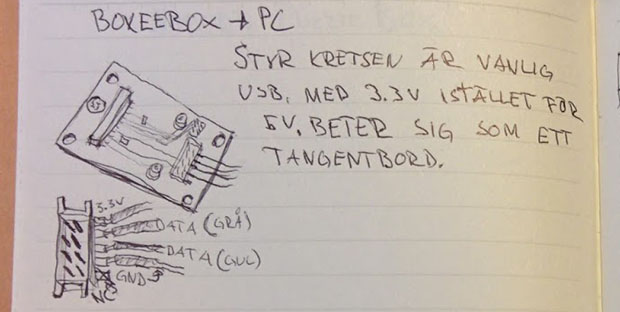 BOXEEBOX → PC
STYR KRETSEN ÄR VANLIG
USB, MED 3.3V ISTÄLLET FÖR
5V. BETER SIG SOM ETT
TANGENTBORD.
3.3V
DATA (GRÅ)
DATA (GUL)
GND
NC